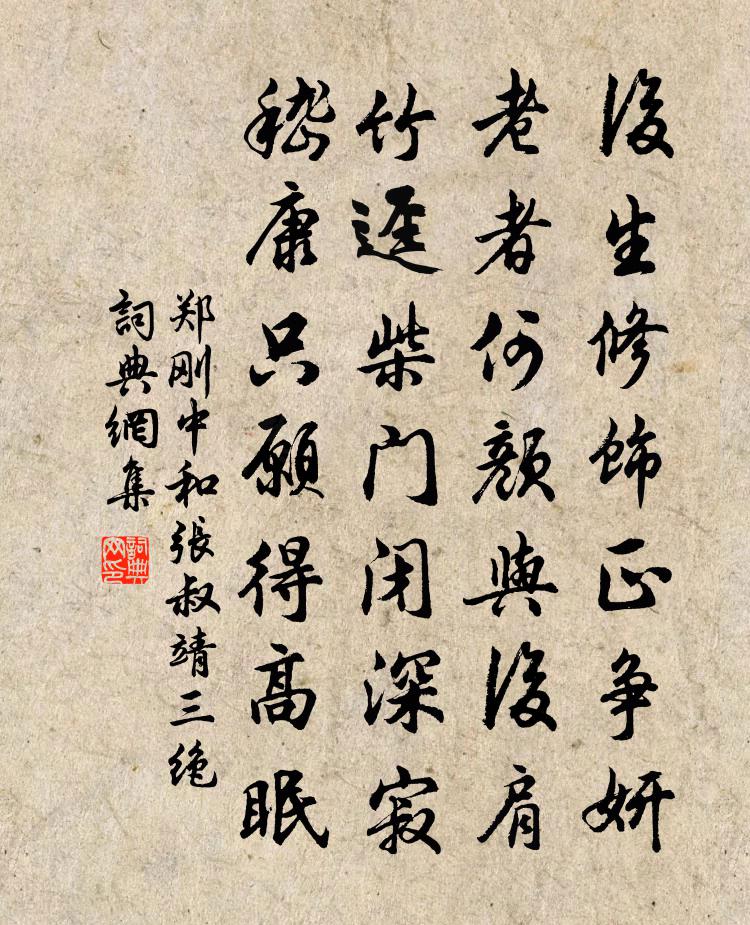 後生修飾正争妍
老者何顏與後肩
竹逕柴門閉深寂
嵇康只願得高眠
郑刚中和張叔靖三绝
詞典網集
詞典
网印